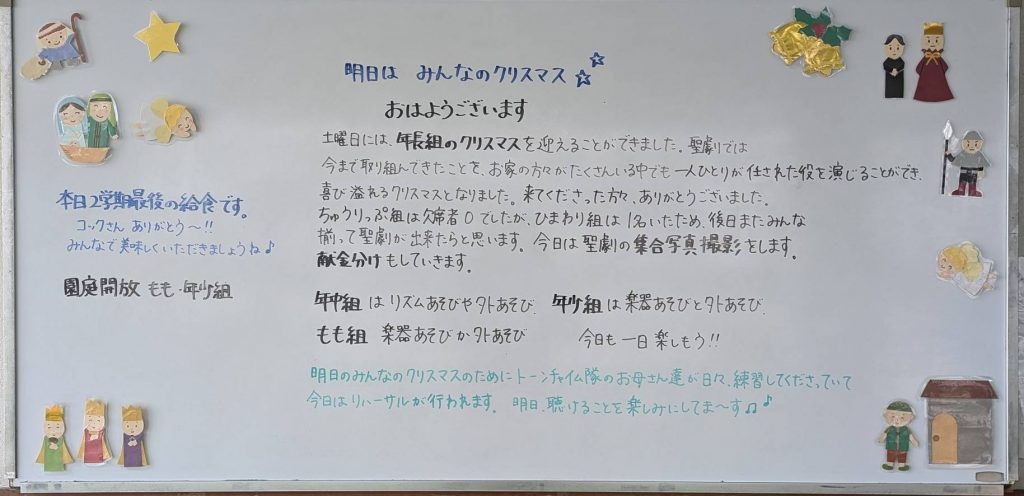 明日は みんなのクリスマス
おはようございます
土曜日には、年長組のクリスマスを迎えることができました。聖劇では
今まで取り組んできたことを、お家の方々がたくさんいる中でも一人ひとりが任された役を演じることができ、
喜び溢れるクリスマスとなりました。来てくださった方々、ありがとうございました。
ちゅうりっぷ組は欠席者0でしたが、ひまわり組は1名いたため、後日またみんな
揃って聖劇が出来たらと思います。今日は聖劇の集合写真撮影をします。
献金分けもしていきます。
年中組はリズムあそびや外あそび、年少組は楽器あそびと外あそび、
もも組 楽器あそびか外あそび 今日も一日楽しもう!!
明日のみんなのクリスマスのためにトーンチャイム隊のお母さん達が日々、練習してくださっていて
今日はリハーサルが行われます。明日、聴けることを楽しみにしてま〜す♫♪
本日2学期最後の給食です。
コックさん ありがとう〜!!
みんなで美味しくいただきましょうね♪
園庭開放 もも・年少組